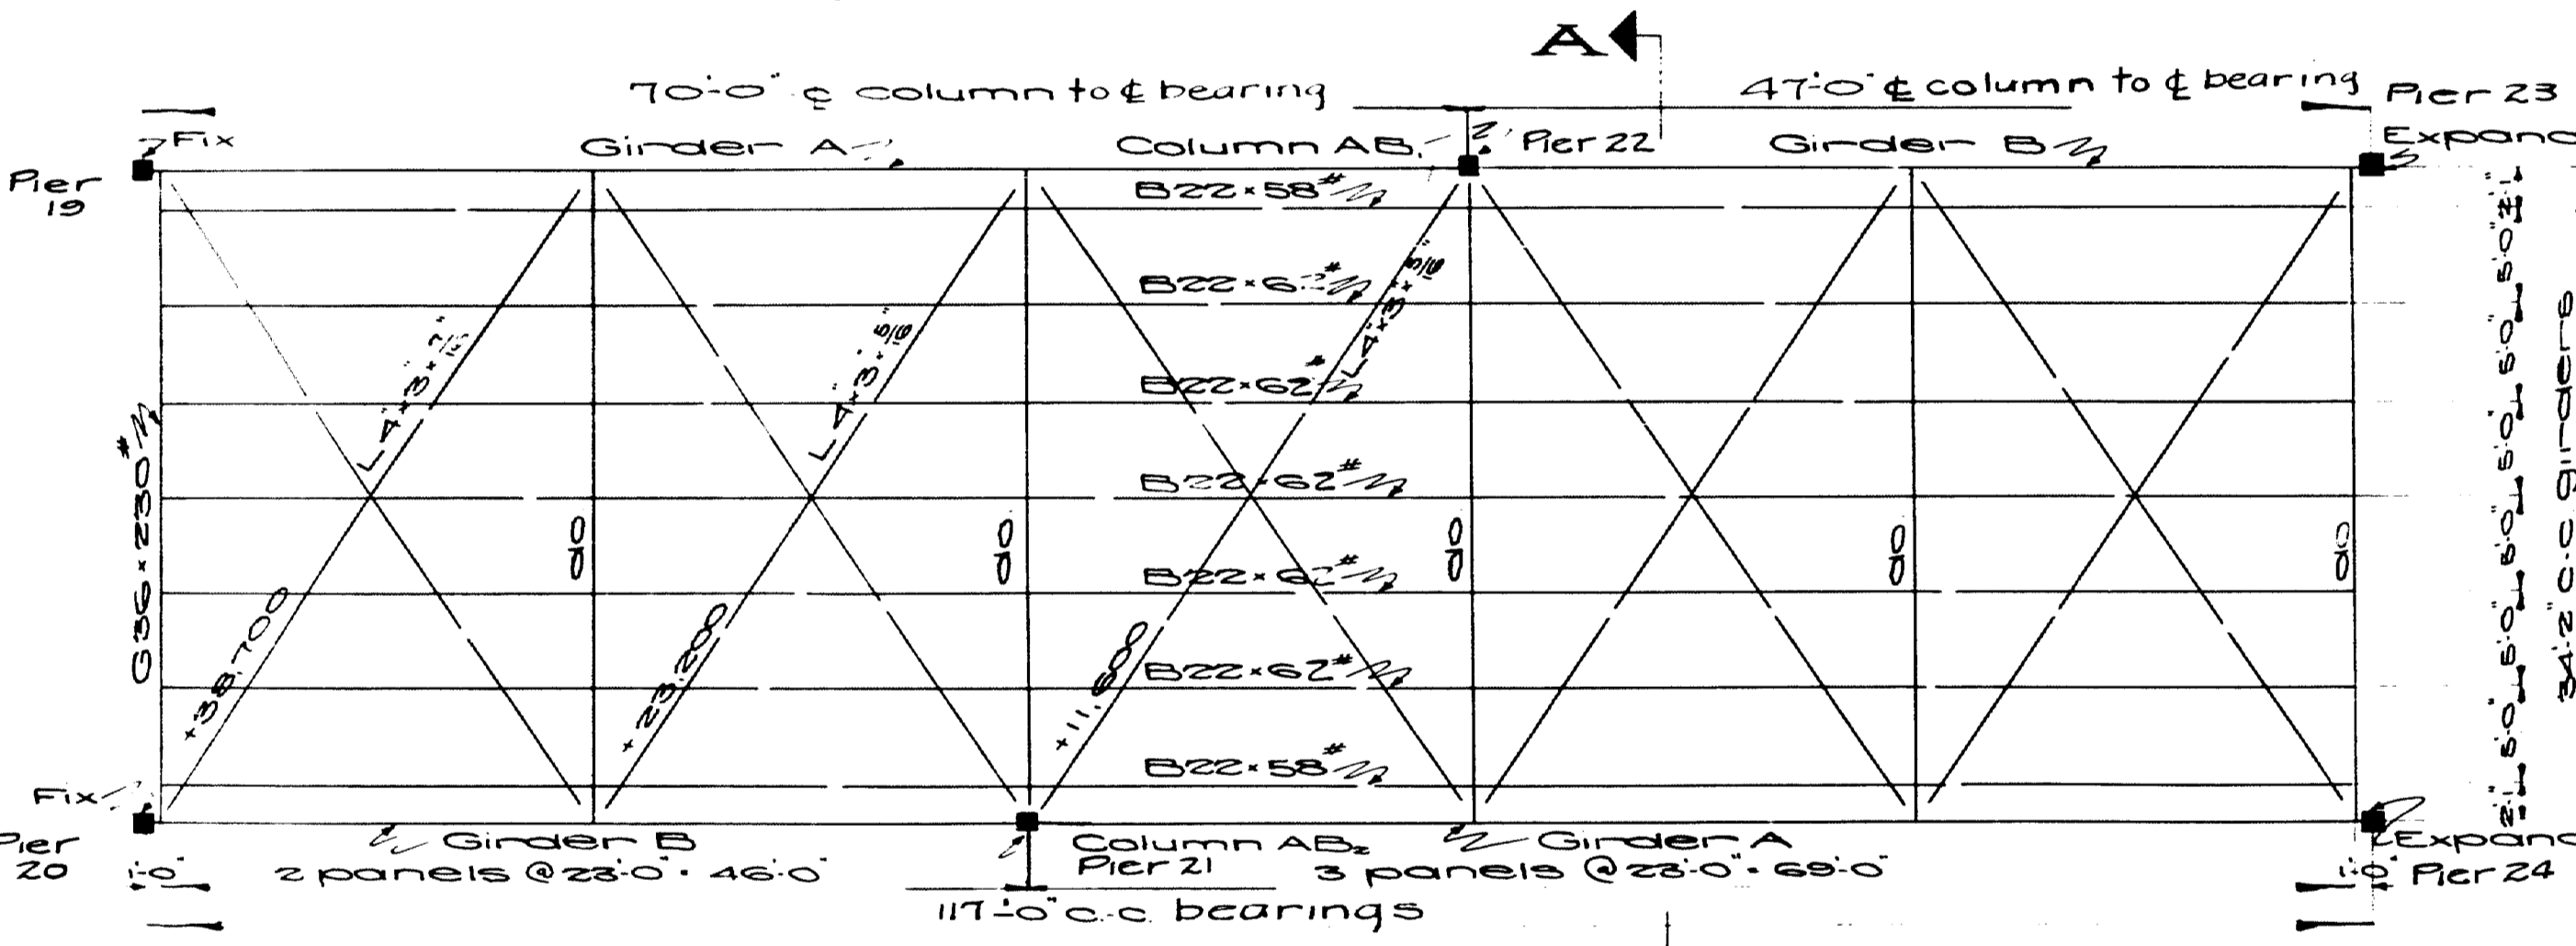 A
70'-0" ȼ column to ȼ bearing
47'-0" ȼ column to ȼ bearing
Pier 23
Fix
Girder A
Column AB₁
Pier 22
Girder B
Expand
Pier
19
B22×58#
B22×62#
B22×62#
B22×62#
B22×62#
B22×58#
L 4"×3"×5/16"
L 4"×3"×5/16"
G36×230#
do
do
do
do
do
+38,700
+23,200
+11,600
2'-1" 5'-0" 5'-0" 5'-0" 5'-0" 5'-0" 5'-0" 2'-1"
34'-2" c.c girders
Fix
Pier
20
Girder B
Column AB₂
Pier 21
Girder A
Expand
1'-0"
2 panels @ 23'-0" = 46'-0"
3 panels @ 23'-0" = 69'-0"
1'-0"
Pier 24
117'-0" c.-c. bearings